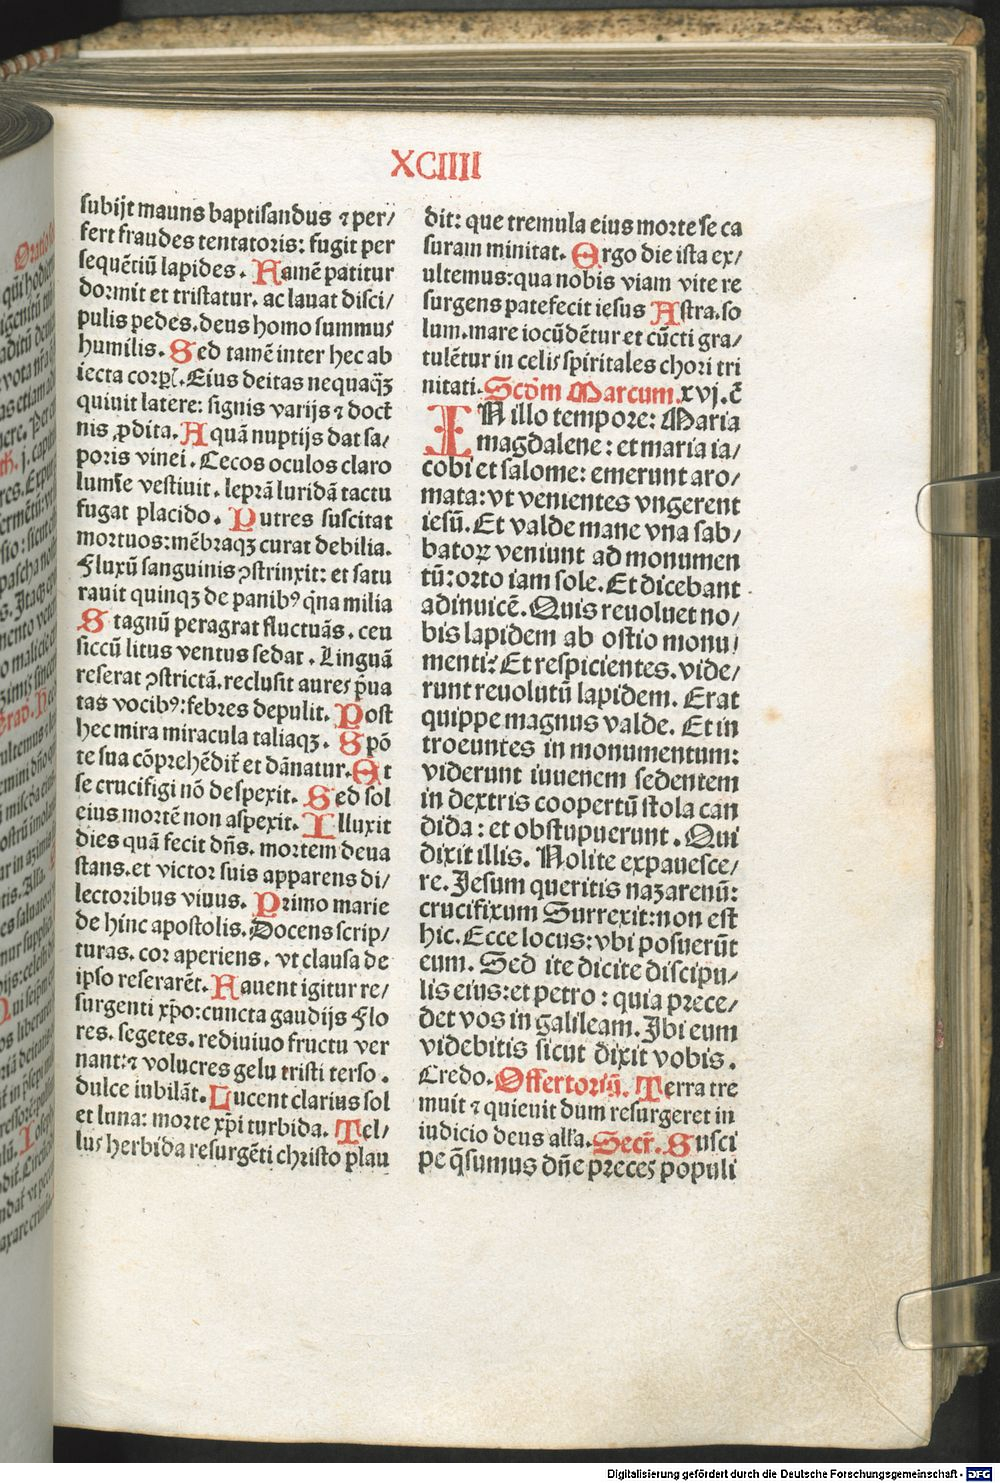 XCIIII
subijt mauns baptisandus ⁊ per/
fert fraudes tentatoris: fugit per
sequētiū lapides. Famē patitur
dormit et tristatur. ac lauat disci/
pulis pedes. deus homo summus
humilis. Sed tamē inter hec ab
iecta corpꝭ. Eius deitas nequaqꝫ
quiuit latere: signis varijs ⁊ doct
nis ꝓdita. Aquā nuptijs dat sa/
poris vinei. Cecos oculos claro
lumīe vestiuit. leprā luridā tactu
fugat placido. Putres suscitat
mortuos: mēbraqꝫ curat debilia.
Fluxū sanguinis ꝯstrinxit: et satu
rauit quinqꝫ de panibꝰ q̄na milia
Stagnū peragrat fluctuās. ceu
siccū litus ventus sedat. Linguā
reserat ꝯstrictā. reclusit aures p̄ua
tas vocibꝰ: febres depulit. Post
hec mira miracula taliaqꝫ. Spō
te sua cōprehēdit̄ et dānatur. Et
se crucifigi nō despexit. Sed sol
eius mortē non aspexit. Illuxit
dies quā fecit dn̄s. mortem deua
stans. et victor suis apparens di/
lectoribus viuus. Primo marie
de hinc apostolis. Docens scrip/
turas. cor aperiens. vt clausa de
ipso reserarēt. Fauent igitur re/
surgenti xp̄o: cuncta gaudijs Flo
res. segetes. rediuiuo fructu ver
nant: ⁊ volucres gelu tristi terso.
dulce iubilāt. Lucent clarius sol
et luna: morte xp̄i turbida. Tel/
lus herbida resurgēti christo plau
dit: que tremula eius morte se ca
suram minitat. Ergo die ista ex/
ultemus: qua nobis viam vite re
surgens patefecit iesus Astra. so
lum. mare iocūdētur et cūcti gra/
tulētur in celis spiritales chori tri
nitati. Scd̄m Marcum. xvj. c̄
IN illo tempore: Maria
magdalene: et maria ia/
cobi et salome: emerunt aro/
mata: vt venientes vngerent
iesū. Et valde mane vna sab/
batoꝝ veniunt ad monumen
tū: orto iam sole. Et dicebant
adinuicē. Quis reuoluet no/
bis lapidem ab ostio monu/
menti? Et respicientes. vide/
runt reuolutū lapidem. Erat
quippe magnus valde. Et in
troeuntes in monumentum:
viderunt iuuenem sedentem
in dextris coopertū stola can
dida: et obstupuerunt. Qui
dixit illis. Nolite expauesce/
re. Jesum queritis nazarenū:
crucifixum Surrexit: non est
hic. Ecce locus: vbi posuerūt
eum. Sed ite dicite discipu/
lis eius: et petro: quia prece/
det vos in galileam. Ibi eum
videbitis sicut dixit vobis.
Credo. Offertoriū. Terra tre
muit ⁊ quieuit dum resurgeret in
iudicio deus alła. Secr̄. Susci
pe q̄sumus dn̄e preces populi
Digitalisierung gefördert durch die Deutsche Forschungsgemeinschaft - DFG